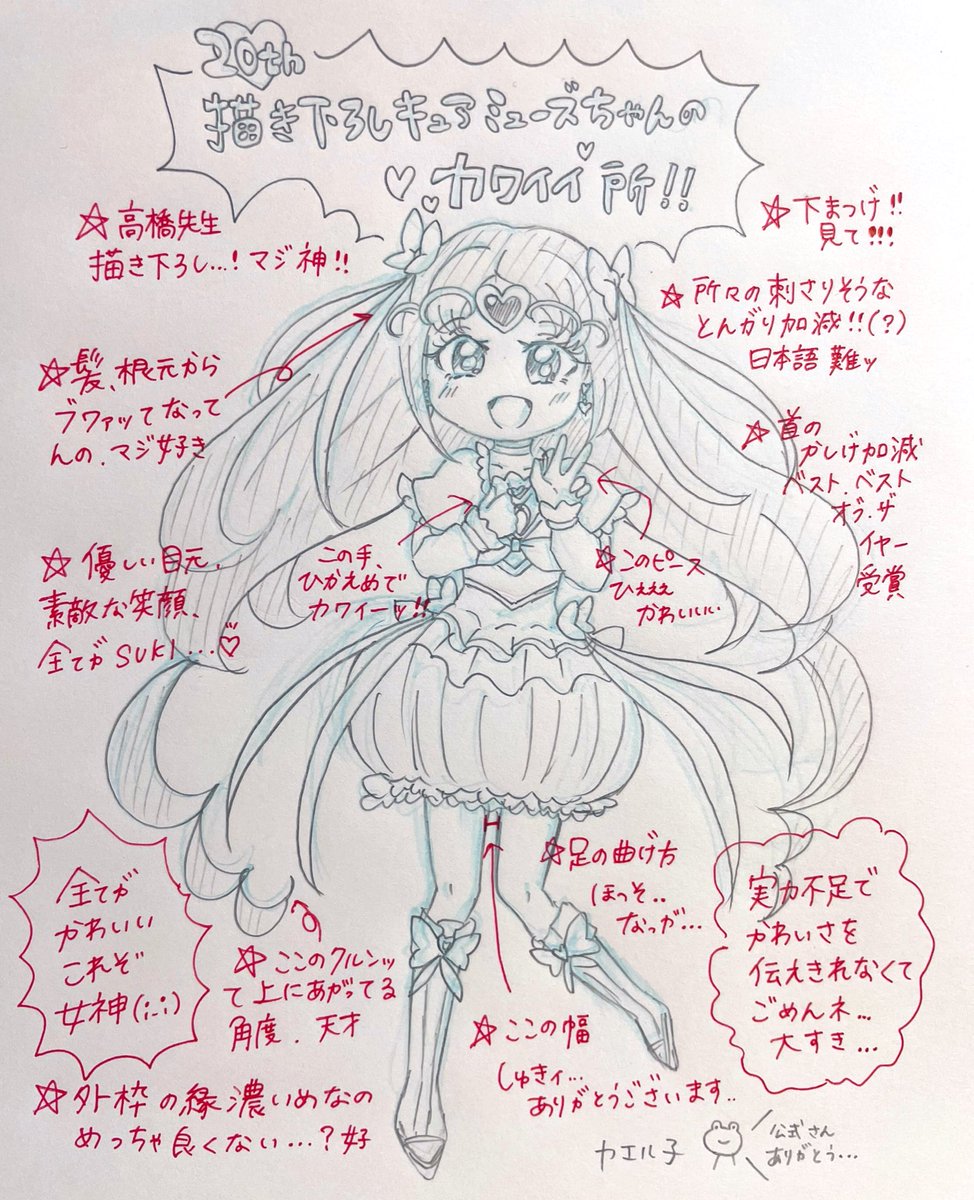 20th
描き下ろしキュアミューズちゃんの
カワイイ所!!
☆高橋先生
描き下ろし…!マジ神!!
☆下まつげ!!
見て!!!
☆所々の刺さりそうな
とんがり加減!!(?)
日本語難ッ
☆髪、根元から
ブワァッてなって
んの.マジ好き
☆首の
かしげ加減
ベスト.ベスト
オブ.ザ
イヤー
受賞
☆優しい目元、
素敵な笑顔、
全てがSUKI…♡
この手、
ひかえめで
カワイーッ!!
☆このピース
ひぇぇぇ
かわいいい.
全てが
かわいい
これぞ
女神(;-;)
☆ここのクルンッ
て上にあがってる
角度.天才
☆足の曲げ方
ほっそ..
なっが…
実力不足で
かわいさを
伝えきれなくて
ごめんネ…
大すき…
☆ここの幅
しゅきィ…
ありがとうございます..
☆外枠の縁濃いめなの
めっちゃ良くない…?好
カエル子
公式さん
ありがとう…